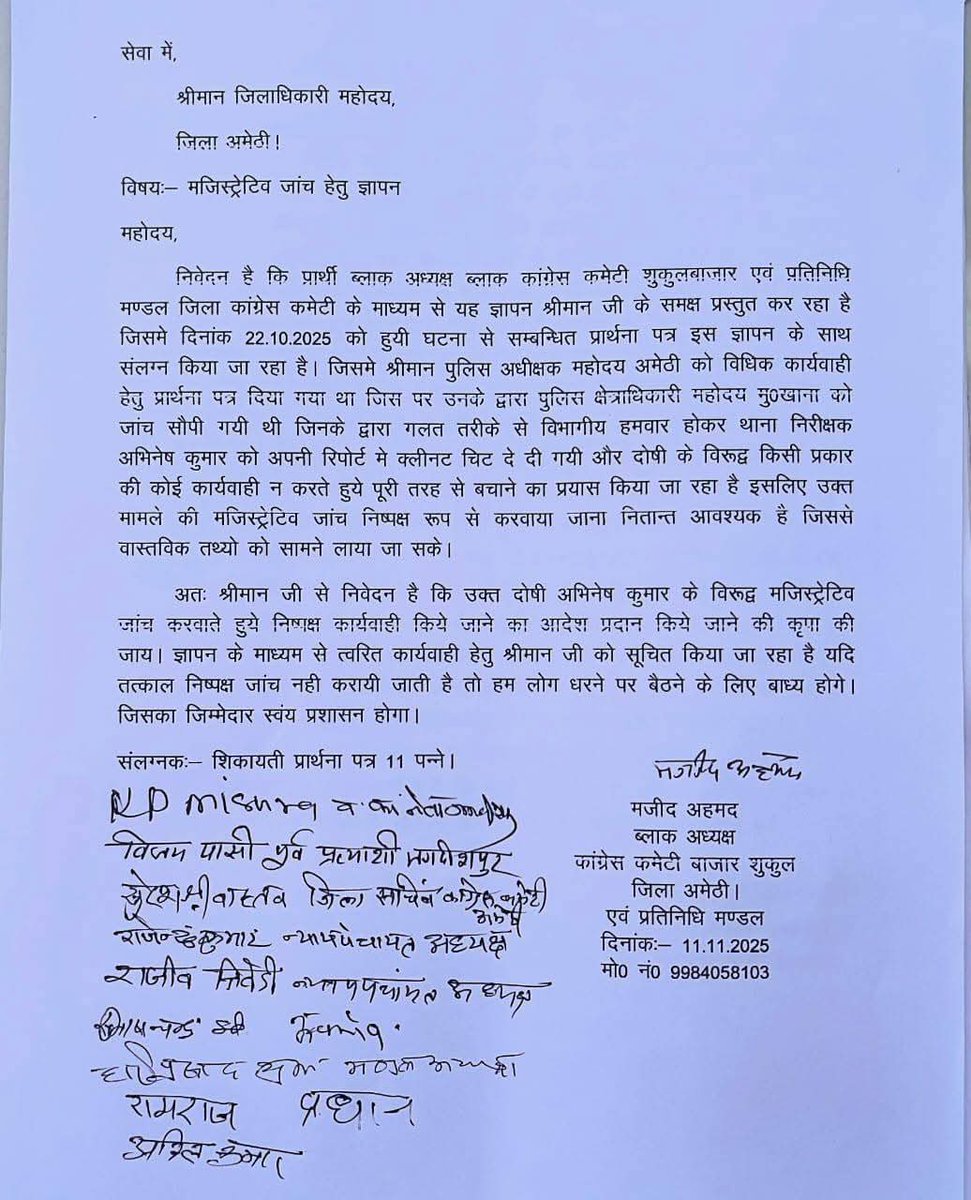 सेवा में,
श्रीमान जिलाधिकारी महोदय,
जिला अमेठी!
विषयः– मजिस्ट्रेटिव जांच हेतु ज्ञापन
महोदय,
निवेदन है कि प्रार्थी ब्लाक अध्यक्ष ब्लाक कांग्रेस कमेटी शुकुलबाजार एवं प्रतिनिधि
मण्डल जिला कांग्रेस कमेटी के माध्यम से यह ज्ञापन श्रीमान जी के समक्ष प्रस्तुत कर रहा है
जिसमे दिनांक 22.10.2025 को हुयी घटना से सम्बन्धित प्रार्थना पत्र इस ज्ञापन के साथ
संलग्न किया जा रहा है। जिसमे श्रीमान पुलिस अधीक्षक महोदय अमेठी को विधिक कार्यवाही
हेतु प्रार्थना पत्र दिया गया था जिस पर उनके द्वारा पुलिस क्षेत्राधिकारी महोदय मु0खाना को
जांच सौपी गयी थी जिनके द्वारा गलत तरीके से विभागीय हमवार होकर थाना निरीक्षक
अभिनेष कुमार को अपनी रिपोर्ट मे क्लीनट चिट दे दी गयी और दोषी के विरूद्व किसी प्रकार
की कोई कार्यवाही न करते हुये पूरी तरह से बचाने का प्रयास किया जा रहा है इसलिए उक्त
मामले की मजिस्ट्रेटिव जांच निष्पक्ष रूप से करवाया जाना नितान्त आवश्यक है जिससे
वास्तविक तथ्यो को सामने लाया जा सके।
अतः श्रीमान जी से निवेदन है कि उक्त दोषी अभिनेष कुमार के विरूद्व मजिस्ट्रेटिव
जांच करवाते हुये निष्पक्ष कार्यवाही किये जाने का आदेश प्रदान किये जाने की कृपा की
जाय। ज्ञापन के माध्यम से त्वरित कार्यवाही हेतु श्रीमान जी को सूचित किया जा रहा है यदि
तत्काल निष्पक्ष जांच नही करायी जाती है तो हम लोग धरने पर बैठने के लिए बाध्य होगे।
जिसका जिम्मेदार स्वंय प्रशासन होगा।
संलग्नकः– शिकायती प्रार्थना पत्र 11 पन्ने।
मजीद अहमद
मजीद अहमद
ब्लाक अध्यक्ष
कांग्रेस कमेटी बाजार शुकुल
जिला अमेठी।
एवं प्रतिनिधि मण्डल
दिनांकः– 11.11.2025
मो0 नं0 9984058103
R P mishra
विजय पासी पूर्व प्रत्याशी जगदीशपुर
सुरेश श्रीवास्तव जिला सचिव कांग्रेस कमेटी
अमेठी
राजेन्द्र कुमार न्याय पंचायत अध्यक्ष
राजीव त्रिवेदी न्याय पंचायत अध्यक्ष
रामराज प्रधान
अनिल कुमार